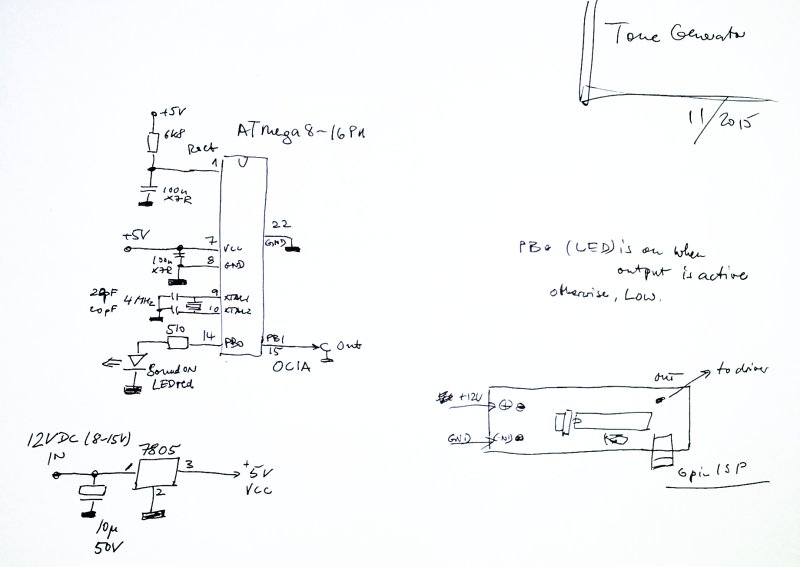 Tone Generator
11/2015
+5V
6K8
ATmega8-16PH
1
100n
X7R
22
GND
+5V
7
VCC
100n
X7R
8
GND
PB0 (LED) is on when
output is active
otherwise, Low.
20pF
4MHz
9
XTAL1
20pF
10
XTAL2
510
14
PB0
PB1
15
Out
OC1A
Sound ON
LED red
out
to driver
+12V
GND
6pin ISP
12VDC (8-15V)
IN
7805
1
3
2
+5V
VCC
10µ
50V